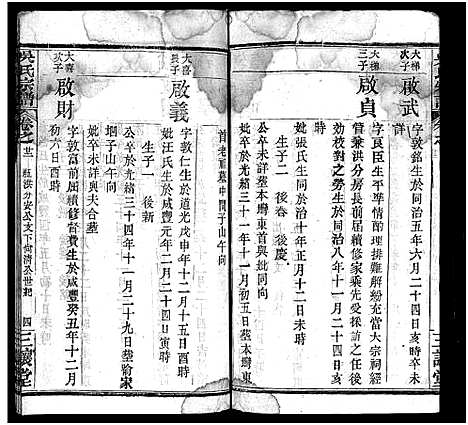 大梯
次子
啟武
字敦銘生於同治五年六月二十四日辰時
卒
大梯
三子
啟貞
字良臣生平準情酌理排難解紛充當大宗祠經
管兼洪分房長前屆續修家乘先受採訪之任後
効校對之勞生於同治八年十一月二十四日亥
時
妣張氏生同於治十年正月十二日未時
生子二 後春 後慶
公卒未詳葬本灣東首與妣同向
妣卒於光緒三十一年十一月初五日葬本灣東
首老祖墓中間子山午向
大喜
長子
啟義
字敦仁生於道光戊申年十二月十五日酉時
妣汪氏生於咸豐元年二月二十日寅時
生子一 後新
公卒於光緒三十四年十一月二十九日葬俞家
垌子山午向
妣卒未詳與夫合墓
大喜
次子
啟財
字敦富前屆續修督費生於咸豐癸丑年十二月
初六日酉時
吳氏宗譜
卷之
世紀
四
三讓堂